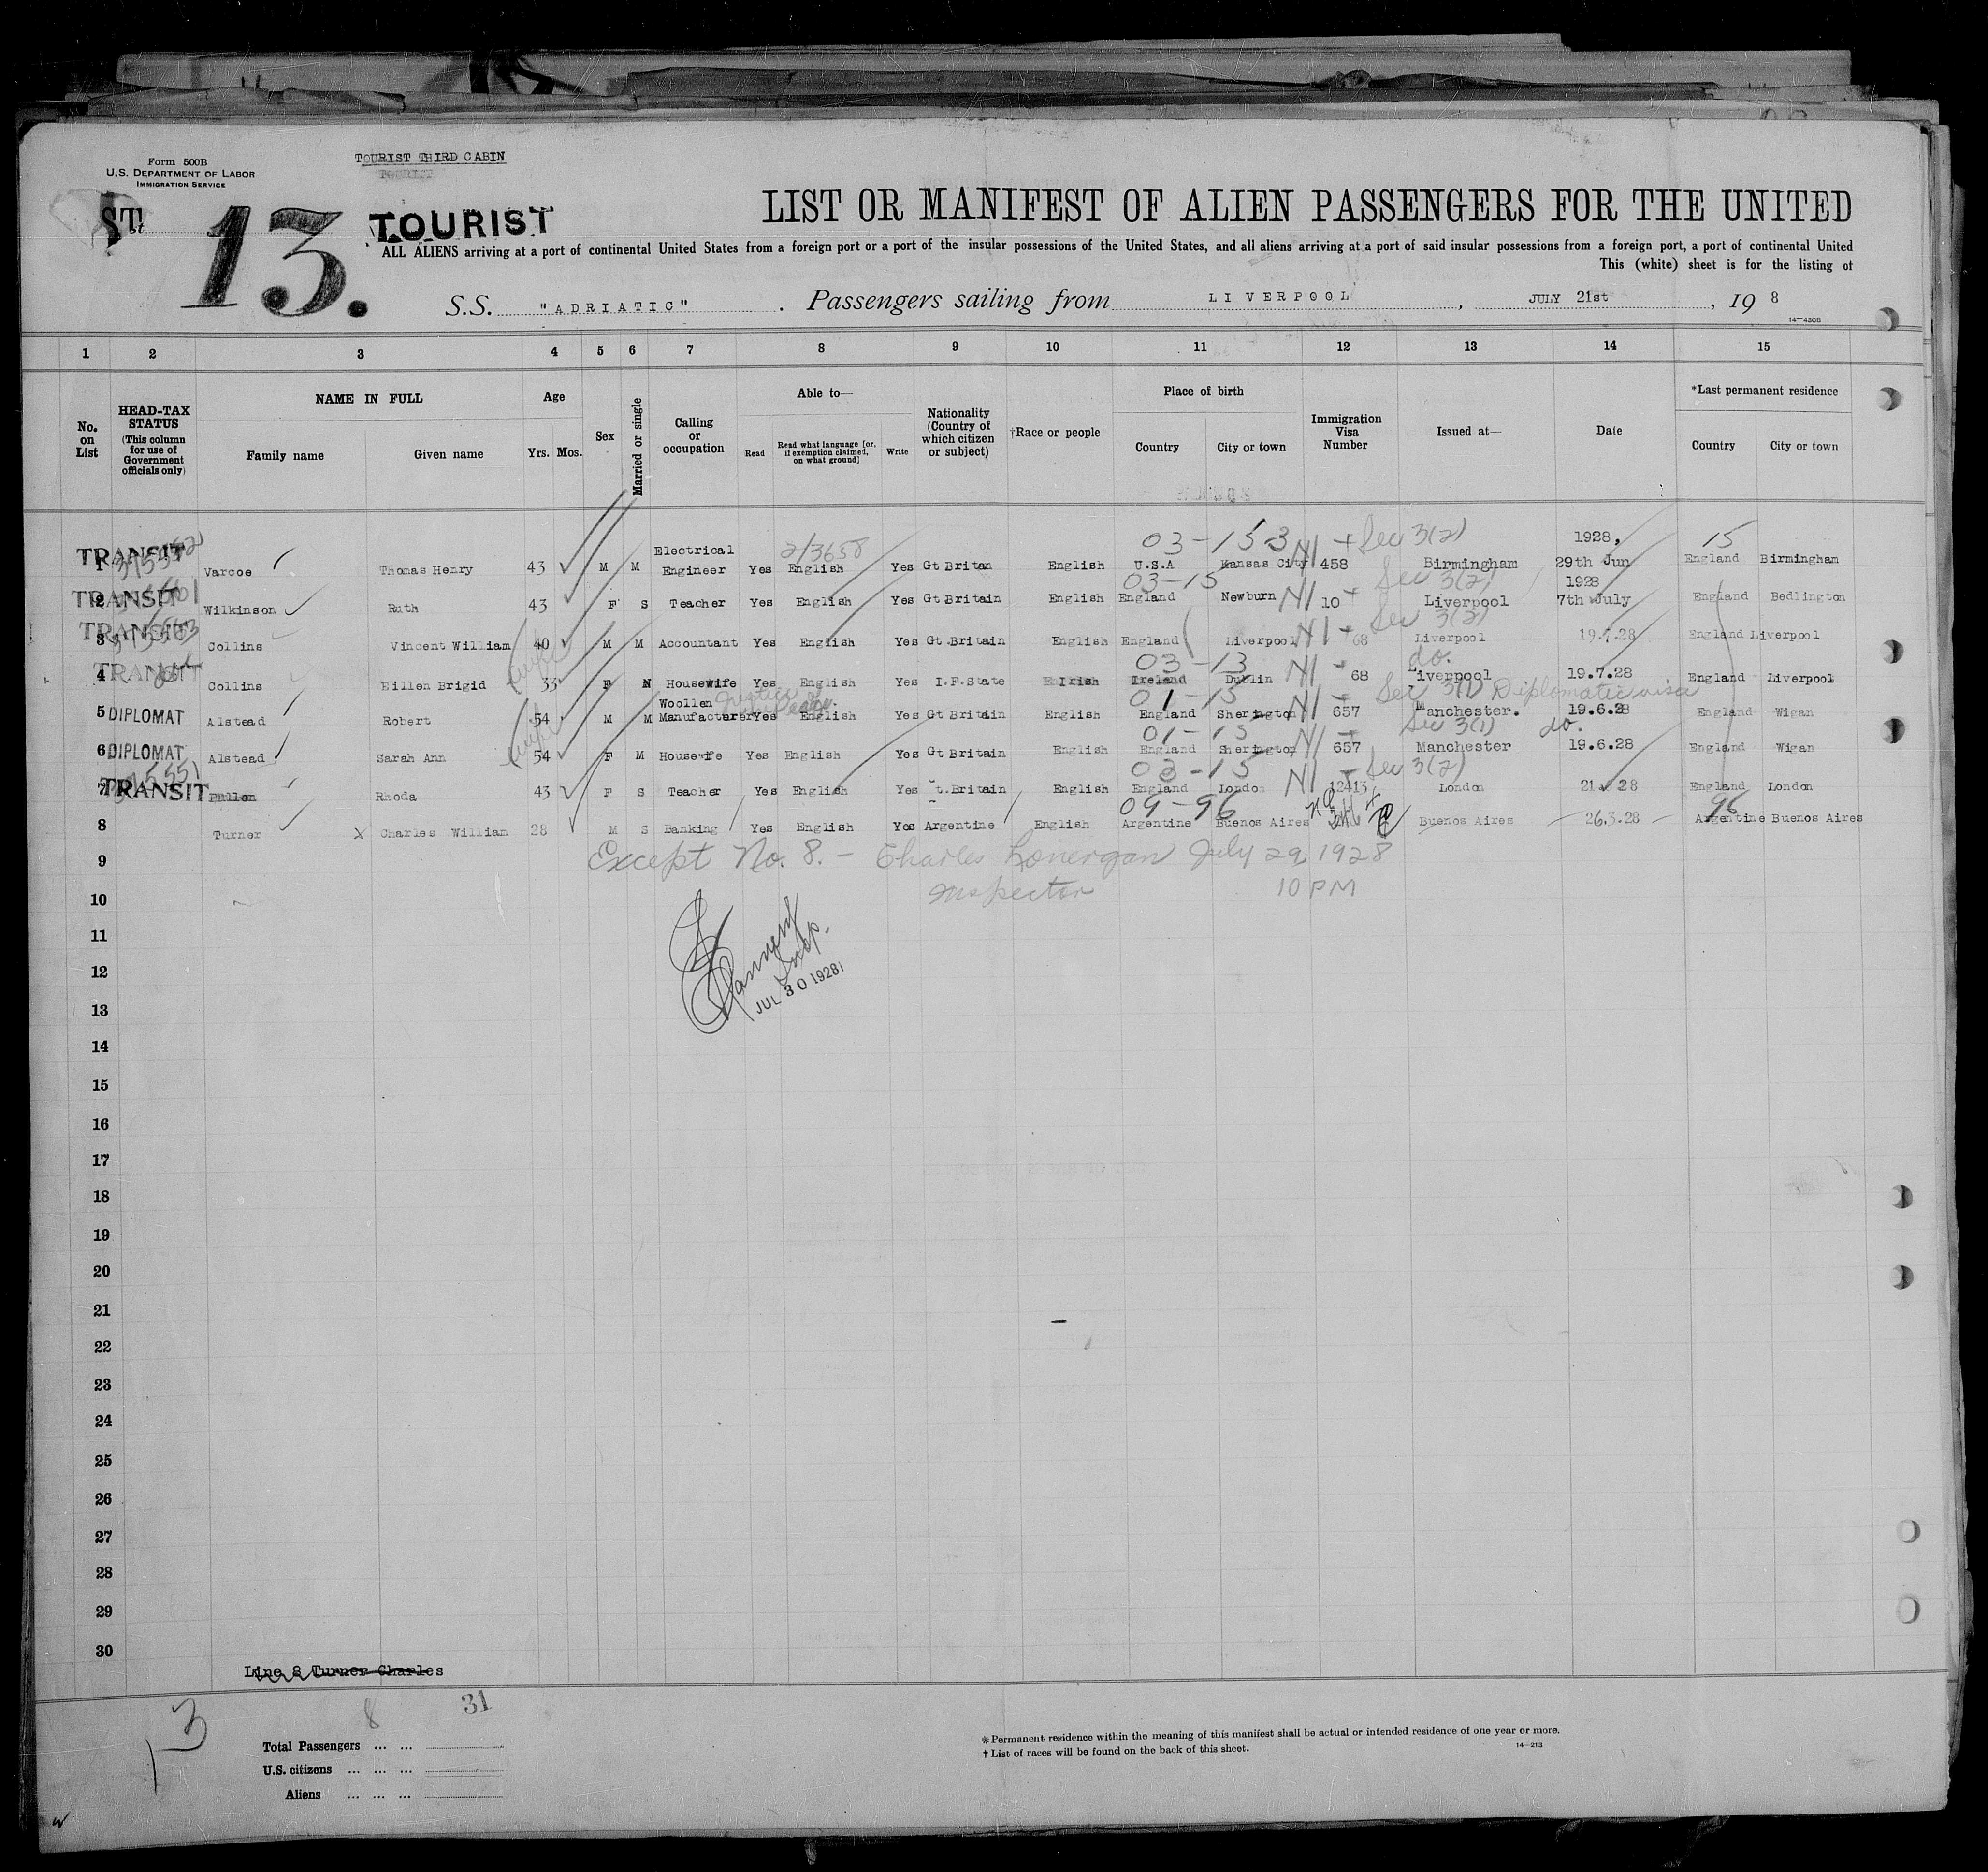 Form 500B
U.S. DEPARTMENT OF LABOR
IMMIGRATION SERVICE
TOURIST THIRD CABIN
TOURIST
13.
TOURIST
LIST OR MANIFEST OF ALIEN PASSENGERS FOR THE UNITED
ALL ALIENS arriving at a port of continental United States from a foreign port or a port of the insular possessions of the United States, and all aliens arriving at a port of said insular possessions from a foreign port, a port of continental United
This (white) sheet is for the listing of
S.S. "ADRIATIC". Passengers sailing from LIVERPOOL, JULY 21st, 19 8
14—430B
1 2 3 4 5 6 7 8 9 10 11 12 13 14 15
No. on List
HEAD-TAX STATUS (This column for use of Government officials only)
NAME IN FULL
Family name Given name
Age
Yrs. Mos.
Sex
Married or single
Calling or occupation
Able to—
Read Read what language [or, if exemption claimed, on what ground] Write
Nationality (Country of which citizen or subject)
†Race or people
Place of birth
Country City or town
Immigration Visa Number
Issued at—
Date
*Last permanent residence
Country City or town
03-15 3 NI + Sec 3(2) 1928, 15
1 TRANSIT Varcoe Thomas Henry 43 M M Electrical Engineer Yes 2/3658 English Yes Gt Britan English U.S.A Kansas City 458 Birmingham 29th Jun England Birmingham
03-15 NI + Sec 3(2) 1928
2 TRANSIT Wilkinson Ruth 43 F S Teacher Yes English Yes Gt Britain English England Newburn 10 Liverpool 7th July England Bedlington
Sec 3(2)
3 TRANSIT Collins Vincent William 40 M M Accountant Yes English Yes Gt.Britain English England Liverpool NI 68 Liverpool 19.7.28 England Liverpool
03-13 NI do.
4 TRANSIT Collins Eillen Brigid wife 33 F M Housewife Yes English Yes I.F.State Irish Ireland Dublin 68 iverpool 19.7.28 England Liverpool
01-15 NI Sec 3(1) Diplomatic visa
5 DIPLOMAT Alstead Robert 54 M M Woollen Manufacturer Justice of Peace. Yes English Yes Gt Britain English England Sherington 657 Manchester. 19.6.28 England Wigan
01-15 NI Sec 3(1) do.
6 DIPLOMAT Alstead Sarah Ann wife 54 F M Housewife Yes English Yes Gt Britain English England Sherington 657 Manchester 19.6.28 England Wigan
03-15 NI Sec 3(2)
7 TRANSIT Rhoda 43 F S Teacher Yes English Yes t.Britain English England London 12413 London 28 England London
09-96 96
8 Turner X Charles William 28 M S Banking Yes English Yes Argentine English Argentine Buenos Aires Buenos Aires 26.3.28 Argentine Buenos Aires
9 Except No. 8. - Charles Lonergan July 29, 1928
10 Inspector 10 PM
11
12 Insp.
JUL 30 1928
13
14
15
16
17
18
19
20
21
22
23
24
25
26
27
28
29
30
Line 8 Turner Charles
13
8 31
Total Passengers ... ...
U.S. citizens ... ... ...
Aliens ... ... ...
*Permanent residence within the meaning of this manifest shall be actual or intended residence of one year or more.
†List of races will be found on the back of this sheet.
14—213